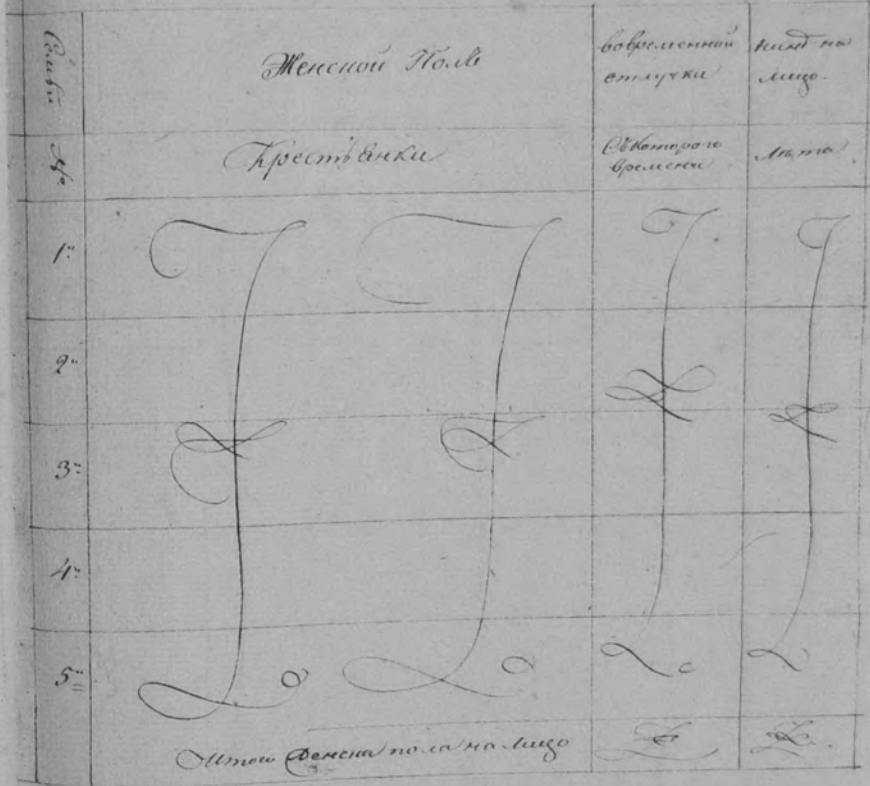 Семьи
Женской Полъ
вовременной
отлучки
нынѣ на
лицо.
№
Крестьянки
Съкотораго
времени
Лѣта
1.
2.
3.
4.
5.
Итого Женска пола на лицо